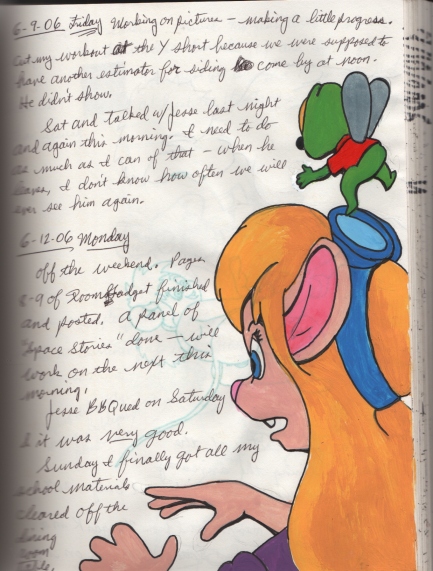 6-9-06 Friday Working on pictures - making a little progress.
Cut my workout at the Y short because we were supposed to
have another estimator for siding come by at noon.
He didn't show.
Sat and talked w/Jesse last night
and again this morning. I need to do
as much as I can of that - when he
leaves, I don't know how often we will
ever see him again.
6-12-06 Monday
Off the weekend. Pages
8-9 of Room Gadget finished
and posted. A panel of
"Space Stories" done - will
work on the next this
morning.
Jesse BBQued on Saturday
& it was very good.
Sunday I finally got all my
school materials
cleared off the
dining
room
table.